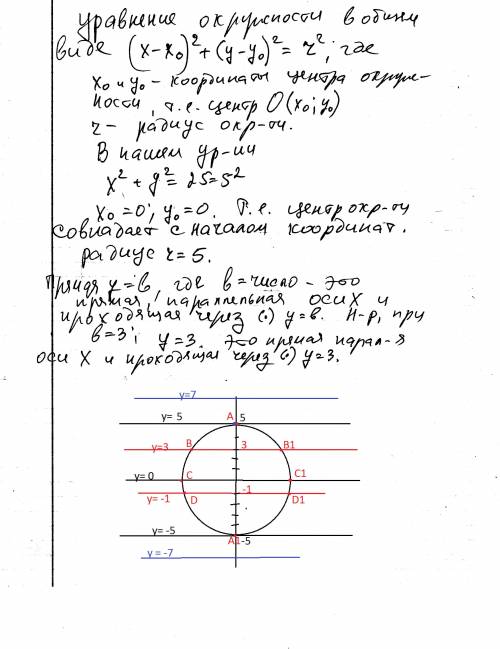 уравнение окружности в общем
виде (x-x₀)²+(y-y₀)²=r², где
x₀ и y₀ - координаты центра окруж-
ности, т.е. центр O(x₀;y₀)
r - радиус окр-ти.
В нашем ур-ии
x²+y²=25=5²
x₀=0; y₀=0. Т.е. центр окр-ти
совпадает с началом координат.
радиус r=5.
Прямая y=b, где b=число - это
прямая, параллельная оси X и
проходящая через (·) y=b. Н-р, при
b=3; y=3. это прямая парал-я
оси X и проходящая через (·) y=3.
y=7
y= 5 A 5
y=3 B 3 B1
y= 0 C C1
y= -1 D -1 D1
y= -5 A1 -5
y = -7